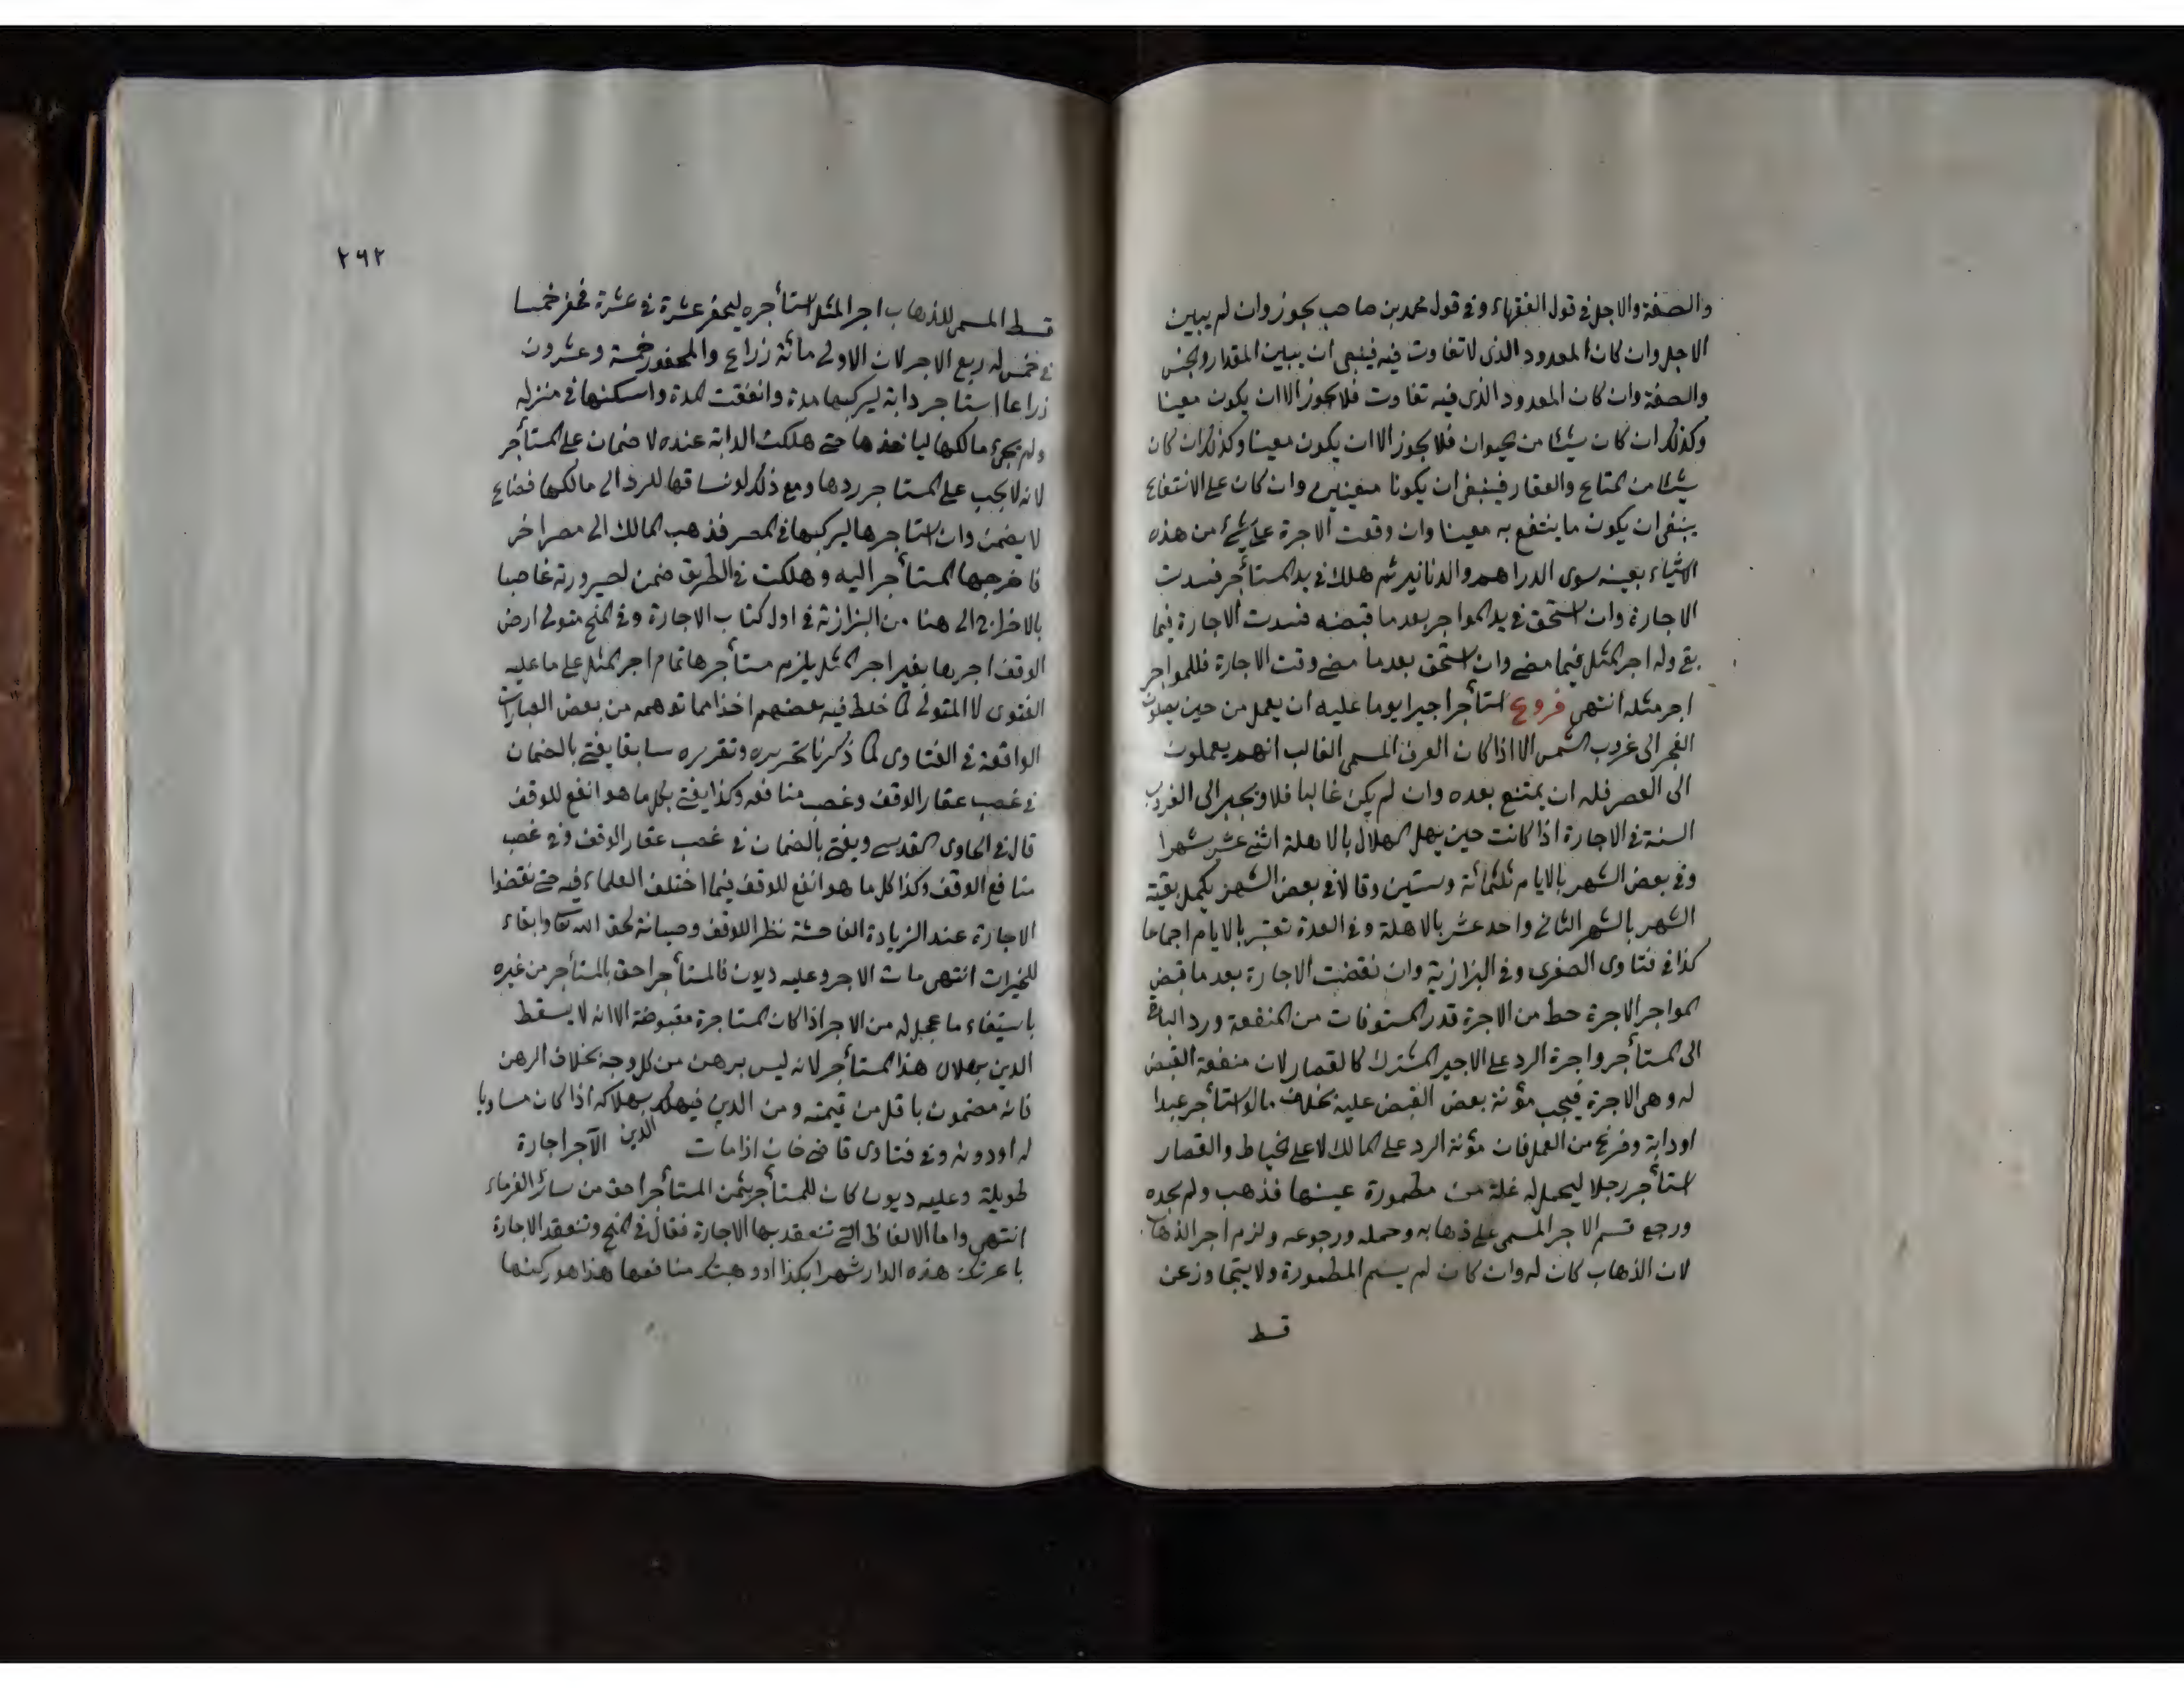 والصفة والاجل في قول الفقهاء وفي قول محمد بن صاحب يجوز وان لم يبين
الاجل وان كان المعدود الذى لا تفاوت فيه فينبغى ان يبين المقدار والجنس
والصفة وان كان المعدود الذى فيه تفاوت فلا يجوز الا ان يكون معينا
وكذلك ان كان شيئا من الحيوان فلا يجوز الا ان يكون معينا وكذلك ان كان
شيئا من المتاع والعقار فينبغى ان يكونا معينين وان كان على الانتفاع
ينبغى ان يكون ما ينتفع به معينا وان وقعت الاجرة على شئ من هذه
الاشياء بعينه سوى الدراهم والدنانير ثم هلك في يد المستأجر فسدت
الاجارة وان استحق في يد المواجر بعد ما قبضه فسدت الاجارة فيما
بقى وله اجر المثل فيما مضى وان استحق بعد ما مضى وقت الاجارة فللمواجر
اجر مثله انتهى فروع استأجر اجيرا يوما عليه ان يعمل من حين يصلون
الفجر الى غروب الشمس الا اذا كان العرف المسمى الغالب انهم يعملون
الى العصر فله ان يمتنع بعده وان لم يكن غالبا فلا ويجبر الى الغروب
السنة في الاجارة اذا كانت حين يهل الهلال بالاهلة اثنى عشر شهرا
وفي بعض الشهر بالايام ثلثمائة وستين وقالا في بعض الشهر يكمل بقية
الشهر بالشهر الثانى واحد عشر بالاهلة وفي العدة تعتبر بالايام اجماعا
كذا في فتاوى الصغرى وفي البزازية وان نقضت الاجارة بعد ما قبض
المواجر الاجرة حط من الاجرة قدر المستوفات من المنفعة ورد الباقى
الى المستأجر واجرة الرد على الاجير المشترك كالقصار لان منفعة القبض
له وهى الاجرة فيجب مؤنة بعض القبض عليه بخلاف ما لو استأجر عبدا
او دابة وفرغ من العمل فان مؤنة الرد على المالك لا على الخياط والقصار
استأجر رجلا ليحمل له غلة من مطمورة عينها فذهب ولم يجده
ورجع قسم الاجر المسمى على ذهابه وحمله ورجوعه ولزم اجر الذهاب
لان الذهاب كان له وان كان لم يسم المطمورة ولا يتجاوز عن
قسط
٢٩٢
قسط المسمى للذهاب اجر المثل استأجره ليحفر عشرة في عشرة فحفر خمسا
في خمس له ربع الاجر لان الاولى مائة ذراع والمحفور خمسة وعشرون
ذراعا استاجر دابة ليركبها مدة وانقضت المدة واسكنها في منزله
ولم يجئ مالكها لياخذها حتى هلكت الدابة عنده لا ضمان على المستأجر
لانه لا يجب على المستاجر ردها ومع ذلك لو ساقها للرد الى مالكها فضاع
لا يضمن وان استاجرها ليركبها في المصر فذهب المالك الى مصر اخر
فاخرجها المستأجر اليه وهلكت في الطريق ضمن لصيرورته غاصبا
بالاخراج الى هنا من البزازية في اول كتاب الاجارة وفي المنح متولى ارض
الوقف اجرها بغير اجر المثل يلزم مستأجرها تمام اجر المثل على ما عليه
الفتوى لا المتولى كما خلط فيه بعضهم اخذا مما توهمه من بعض العبارات
الواقعة في الفتاوى كما ذكرنا تحريره وتقريره سابقا يفتى بالضمان
في غصب عقار الوقف وغصب منافعه وكذا يفتى بكل ما هو انفع للوقف
قال في الحاوى القدسى ويفتى بالضمان في غصب عقار الوقف وفي غصب
منافع الوقف وكذا كل ما هو انفع للوقف فيما اختلف العلماء فيه حتى نقضوا
الاجارة عند الزيادة الفاحشة نظرا للوقف وصيانة لحق الله تعالى وابقاء
للخيرات انتهى مات الاجر وعليه ديون فالمستأجر احق بالمستأجر من غيره
باستيفاء ما عجل له من الاجر اذا كان المستاجرة مقبوضة الا انه لا يسقط
الدين بهلاك هذا المستأجر لانه ليس برهن من كل وجه بخلاف الرهن
فانه مضمون باقل من قيمته ومن الدين فيهلك بهلاكه اذا كان مساويا
له او دونه وفي فتاوى قاضى خان اذا مات الدين الآجر اجارة
طويلة وعليه ديون كان للمستأجر بثمن المستأجر احق من سائر الغرماء
انتهى واما الالفاظ التى تنعقد بها الاجارة فقال في المنح وتنعقد الاجارة
باعرتك هذه الدار شهرا بكذا او وهبتك منافعها هذا هو ركنها